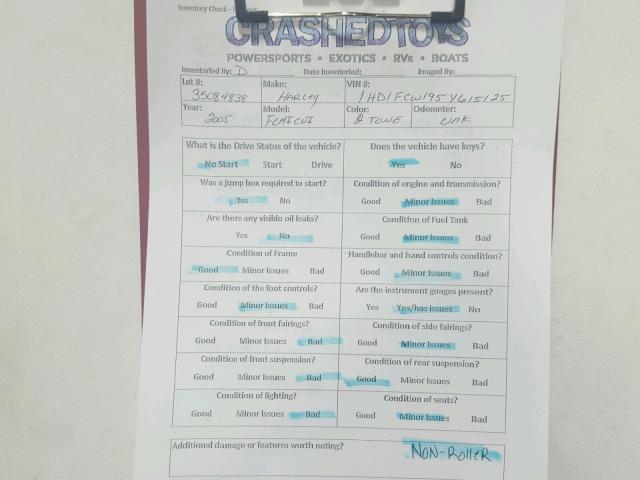 Inventory Check -
CRASHEDTOYS
POWERSPORTS • EXOTICS • RVs • BOATS
Inventoried By: D Date Inventoried: Imaged By:
Lot #: Make: VIN #:
35084838 HARLEY 1HD1FCW195Y615125
Year: Model: Color: Odometer:
2005 FLHTCUI 2 TONE UNK
What is the Drive Status of the vehicle? Does the vehicle have keys?
No Start Start Drive Yes No
Was a jump box required to start? Condition of engine and transmission?
Yes No Good Minor Issues Bad
Are there any visible oil leaks? Condition of Fuel Tank
Yes No Good Minor Issues Bad
Condition of Frame Handlebar and hand controls condition?
Good Minor Issues Bad Good Minor Issues Bad
Condition of the foot controls? Are the instrument guages present?
Good Minor Issues Bad Yes Yes/has issues No
Condition of front fairings? Condition of side fairings?
Good Minor Issues Bad Good Minor Issues Bad
Condition of front suspension? Condition of rear suspension?
Good Minor Issues Bad Good Minor Issues Bad
Condition of lighting? Condition of seats?
Good Minor Issues Bad Good Minor Issues Bad
Additional damage or features worth noting? NON-ROLLER